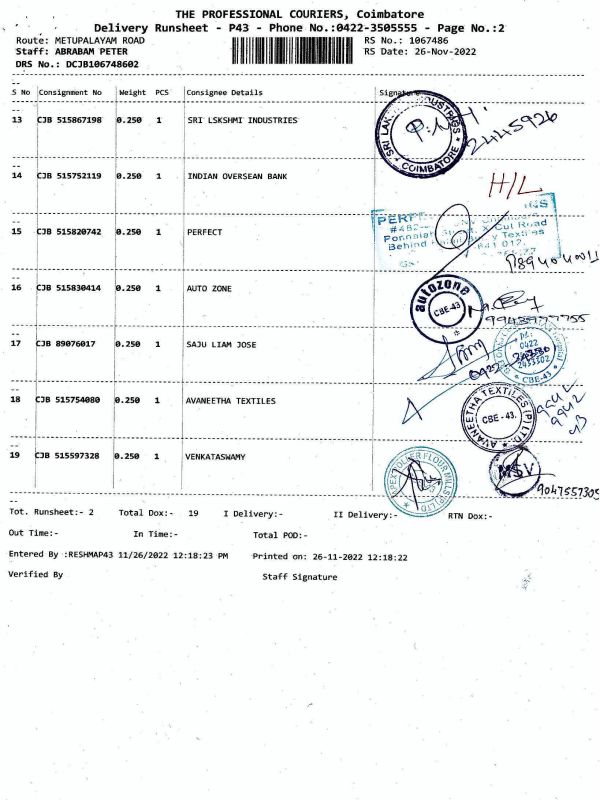 THE PROFESSIONAL COURIERS, Coimbatore
Delivery Runsheet - P43 - Phone No.:0422-3505555 - Page No.:2
Route: METUPALAYAM ROAD
RS No.: 1067486
Staff: ABRABAM PETER
RS Date: 26-Nov-2022
DRS No.: DCJB106748602
S No Consignment No Weight PCS Consignee Details Signature
13 CJB 515867198 0.250 1 SRI LSKSHMI INDUSTRIES
COIMBATORE
2445926
14 CJB 515752119 0.250 1 INDIAN OVERSEAN BANK
H/L
15 CJB 515820742 0.250 1 PERFECT
16 CJB 515830414 0.250 1 AUTO ZONE
autozone
CBE-43
17 CJB 89076017 0.250 1 SAJU LIAM JOSE
0422
CBE-43
18 CJB 515754080 0.250 1 AVANEETHA TEXTILES
AVANEETHA TEXTILES (P) LTD.
CBE-43.
19 CJB 515597328 0.250 1 VENKATASWAMY
FLOUR MILLS (P) LTD
MSV
9047557305
Tot. Runsheet:- 2 Total Dox:- 19 I Delivery:- II Delivery:- RTN Dox:-
Out Time:- In Time:- Total POD:-
Entered By :RESHMAP43 11/26/2022 12:18:23 PM Printed on: 26-11-2022 12:18:22
Verified By Staff Signature